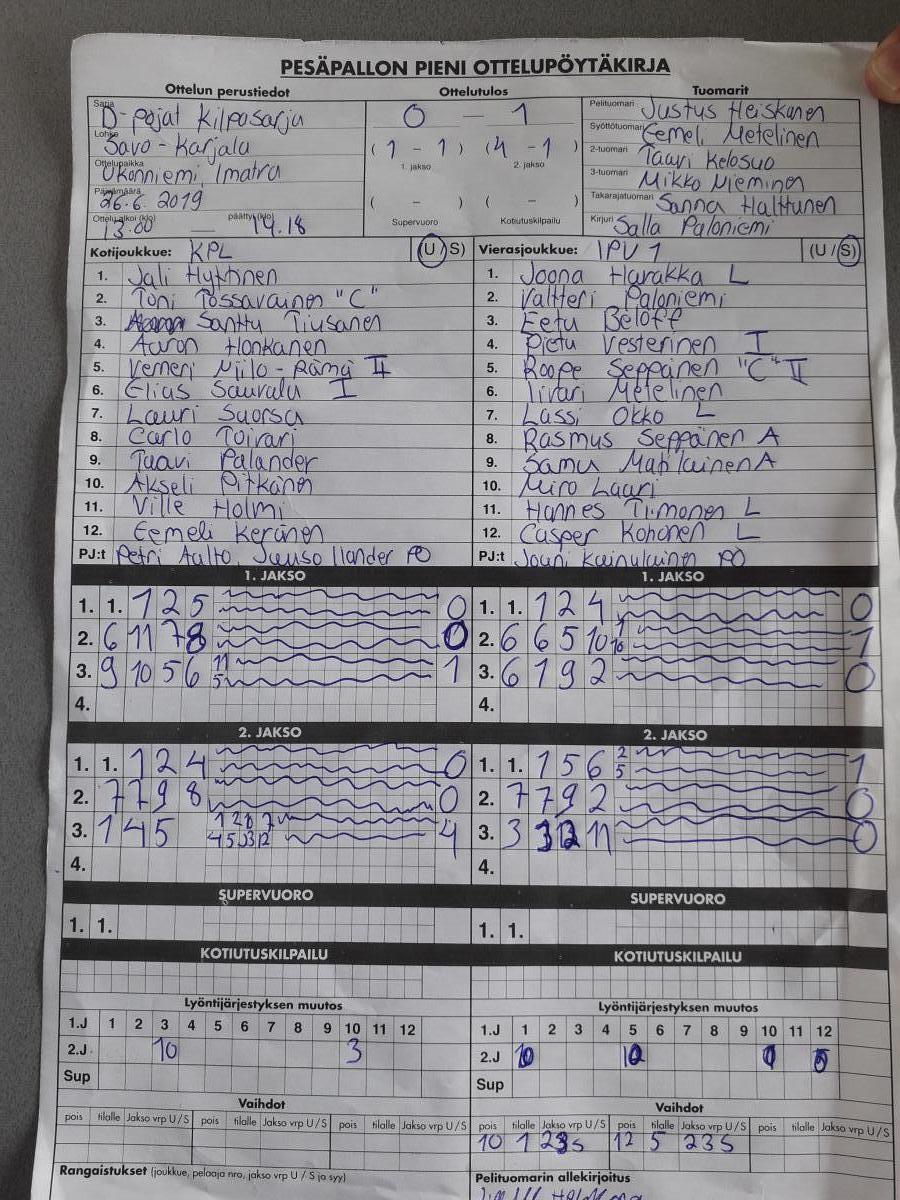 PESÄPALLON PIENI OTTELUPÖYTÄKIRJA
Ottelun perustiedot Ottelutulos Tuomarit
Sarja D-pojat Kilpasarja 0 — 1 Pelituomari Justus Heiskanen
Lohko Savo-Karjala ( 1 - 1 ) (4 -1 ) Syöttötuomari Eemeli Metelinen
1. jakso 2. jakso 2-tuomari Taavi Kelosuo
Ottelupaikka Ukonniemi Imatra 3-tuomari Mikko Nieminen
Päivämäärä 26.6. 2019 ( - ) ( - ) Takarajatuomari Sanna Halttunen
Ottelu alkoi (klo) 13.00 — päättyi (klo) 14.18 Supervuoro Kotiutuskilpailu Kirjuri Salla Paloniemi
Kotijoukkue: KPL (U/S) Vierasjoukkue: IPV 1 (U/S)
1. Jali Hyttinen 1. Joona Harakka L
2. Toni Tossavainen "C" 2. Valtteri Paloniemi
3. Santtu Tiusanen 3. Eetu Beloff
4. Aaron Honkanen 4. Pietu Vesterinen I
5. Verneri Miilo-Rämä II 5. Roope Seppänen "C" II
6. Elias Sauvala I 6. Iivari Metelinen
7. Lauri Suorsa 7. Lassi Okko L
8. Carlo Toivari 8. Rasmus Seppänen A
9. Taavi Palander 9. Samu Matilainen A
10. Akseli Pitkänen 10. Miro Laari
11. Ville Holmi 11. Hannes Timonen L
12. Eemeli Keränen 12. Casper Kohonen L
PJ:t Petri Aalto, Juuso Ilander PO PJ:t Jouni Kainulainen PO
1. JAKSO 1. JAKSO
1. 1. 1 2 5 0 1. 1. 1 2 4 0
2. 6 11 7 8 0 2. 6 6 5 10 1
3. 9 10 5 6 11 5 1 3. 6 7 9 2 0
4. 4.
2. JAKSO 2. JAKSO
1. 1. 1 2 4 0 1. 1. 1 5 6 2 5 1
2. 7 7 9 8 0 2. 7 7 9 2 0
3. 1 4 5 1 2 8 7 4 5 3 12 4 3. 3 12 11 0
4. 4.
SUPERVUORO SUPERVUORO
1. 1. 1. 1.
KOTIUTUSKILPAILU KOTIUTUSKILPAILU
Lyöntijärjestyksen muutos Lyöntijärjestyksen muutos
1.J 1 2 3 4 5 6 7 8 9 10 11 12 1.J 1 2 3 4 5 6 7 8 9 10 11 12
2.J 10 3 2.J 10
Sup Sup
Vaihdot Vaihdot
pois tilalle Jakso vrp U/S pois tilalle Jakso vrp U/S pois tilalle Jakso vrp U/S pois tilalle Jakso vrp U/S pois tilalle Jakso vrp U/S pois tilalle Jakso vrp U/S
10 1 2 3 S 12 5 2 3 S
Rangaistukset (joukkue, pelaaja nro, jakso vrp U / S ja syy) Pelituomarin allekirjoitus